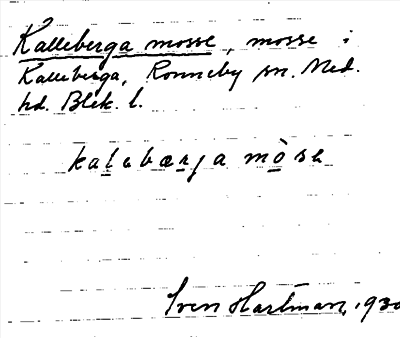 Kalleberga mosse, mosse i
Kalleberga, Ronneby sn. Med.
hd. Blek. l.
kalebærja mòse
Sven Hartman, 1930